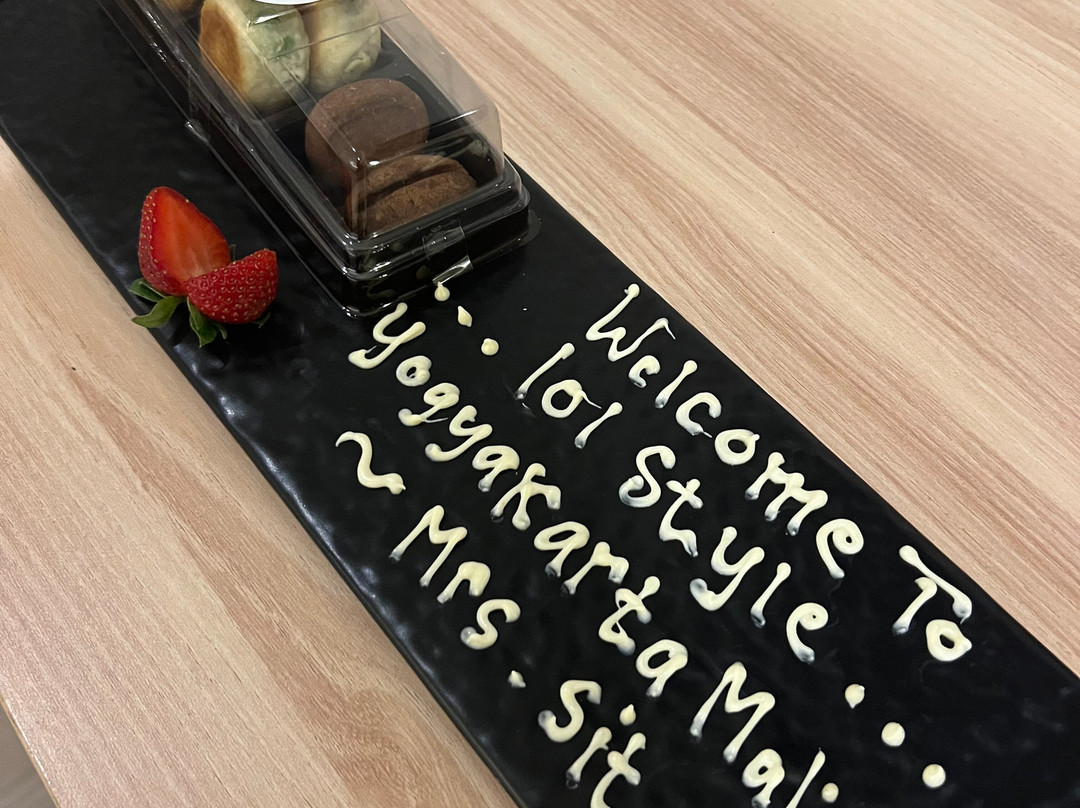 Welcome To
101 Style
Yogyakarta Mali
~ Mrs. Sit